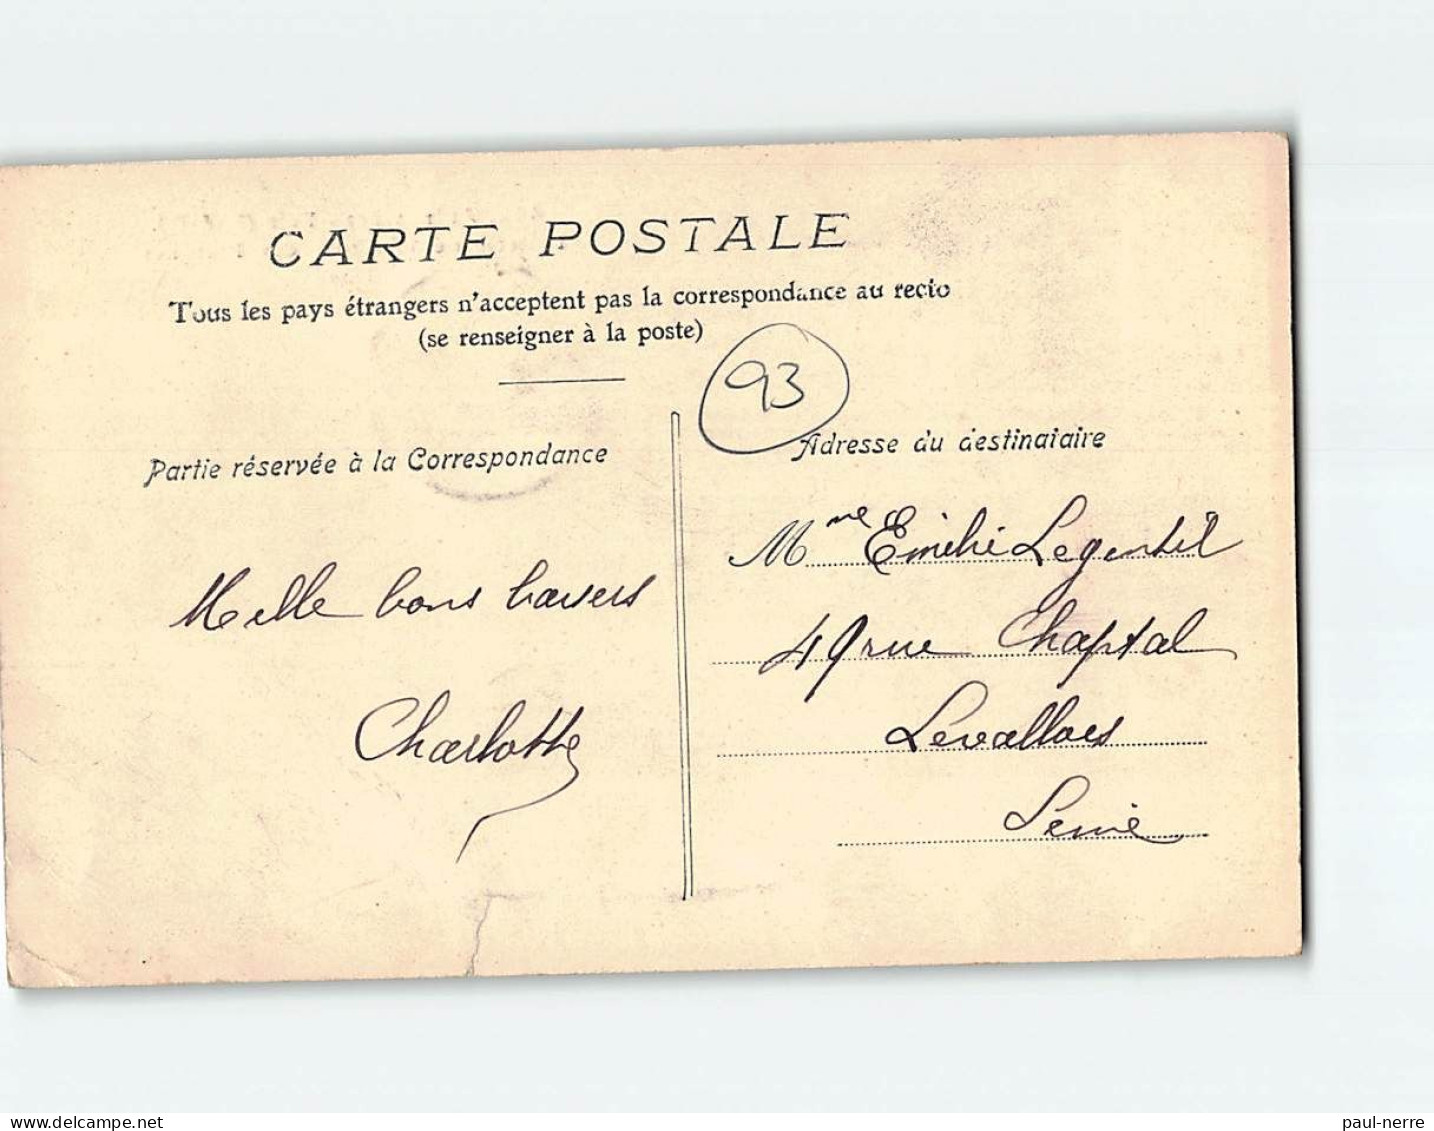 CARTE POSTALE
Tous les pays étrangers n'acceptent pas la correspondance au recto
(se renseigner à la poste)
93
Partie réservée à la Correspondance
Adresse du destinataire
Mille bons baisers
Charlotte
Mme Emilie Legentil
49 rue Chaptal
Levallois
Seine
delcampe.net
paul-nerre